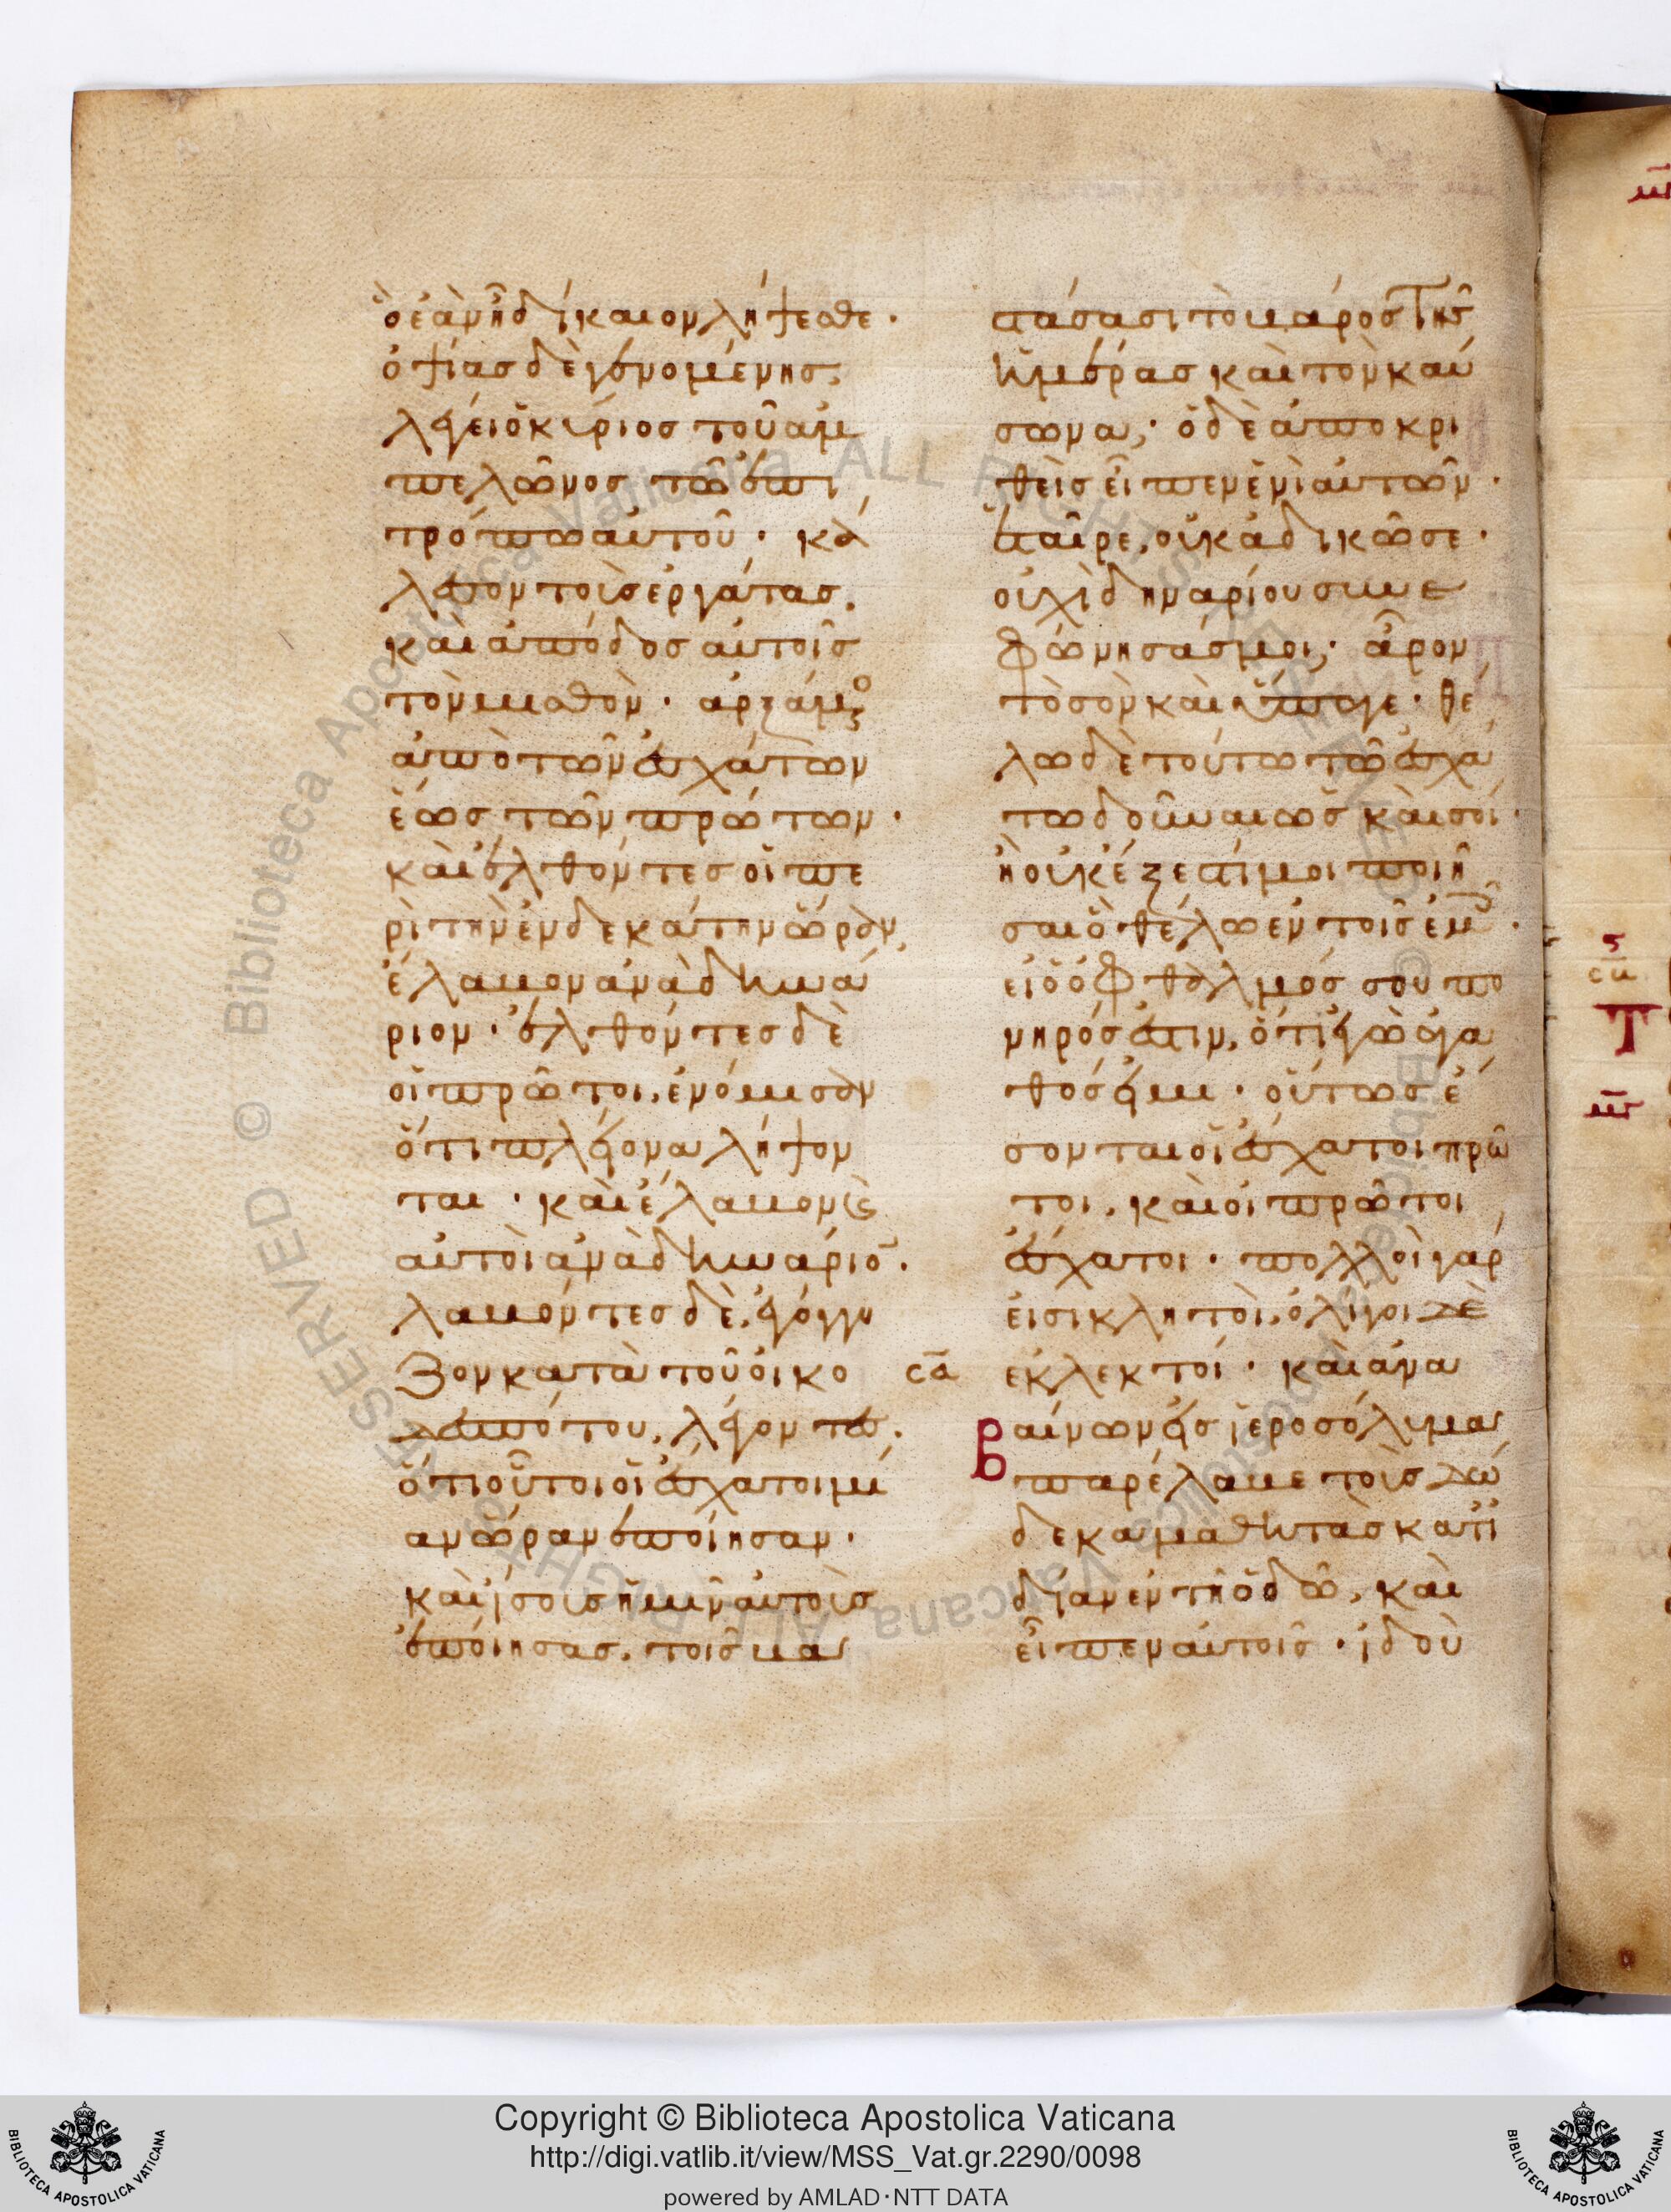 ὃ ἐὰν ᾖ δίκαιον λήψεσθε·
ὀψίας δὲ γενομένης,
λέγει ὁ κύριος τοῦ ἀμ
πελῶνος τῶ ἐπι
τρόπω αὐτοῦ· κά
λεσον τοὺς ἐργάτας.
καὶ ἀπόδος αὐτοῖς
τὸν μισθὸν· ἀρξάμενο
ἀπὸ τῶν ἐσχάτων
ἕως τῶν πρώτων·
καὶ ἐλθόντες οἱ πε
ρὶ τὴν ἑνδεκάτην ὥραν,
ἔλαβον ἀνὰ δηνά
ριον· ἐλθόντες δὲ
οἱ πρῶτοι, ἐνόμισαν
ὅτι πλείονα λήψον
ται· καὶ ἔλαβον καὶ
αὐτοὶ ἀνὰ δηνάριον.
λαβόντες δὲ, ἐγόγγυ
ζον κατὰ τοῦ οἰκο
δεσπότου, λέγοντες.
ὅτι οὗτοι οἱ ἔσχατοι μί
αν ὥραν ἐποίησαν·
καὶ ἴσους ἡμῖν αὐτοὺς
ἐποίησας. τοῖς βα
στάσασι τὸ βάρος τῆς
ἡμέρας καὶ τὸν καύ
σωνα,· ὁ δὲ ἀποκρι
θεὶς εἶπεν ἑνὶ αὐτῶν·
ἑταῖρε, οὐκ ἀδικῶ σε·
οὐχὶ δηναρίου συνε
φώνησάς μοι,· ἆρον
τὸ σὸν καὶ ὕπαγε· θέ
λω δὲ τούτω τῶ ἐσχά
τω δοῦναι ὡς καὶ σοί·
ἢ οὐκ ἔξεστί μοι ποιῆ
σαι ὃ θέλω ἐν τοῖς ἐμοῖς·
εἰ ὁ ὀφθαλμός σου πο
νηρός ἐστιν, ὅτι ἐγὼ ἀγα
θός εἰμι· οὕτως ἔ
σονται οἱ ἔσχατοι πρῶ
τοι, καὶ οἱ πρῶτοι
ἔσχατοι· πολλοὶ γάρ
εἰσι κλητοὶ, ὀλίγοι δὲ
σα ἐκλεκτοί· καὶ ἀνα
βαίνων εἰς ἱεροσόλυμα
παρέλαβε τοὺς δώ
δεκα μαθητὰς κατ ἰ
δίαν ἐν τῆ ὁδῶ, καὶ
εἶπεν αὐτοῖς· ἰδοὺ
Copyright © Biblioteca Apostolica Vaticana
http://digi.vatlib.it/view/MSS_Vat.gr.2290/0098
powered by AMLAD·NTT DATA
BIBLIOTECA APOSTOLICA VATICANA
BIBLIOTECA APOSTOLICA VATICANA